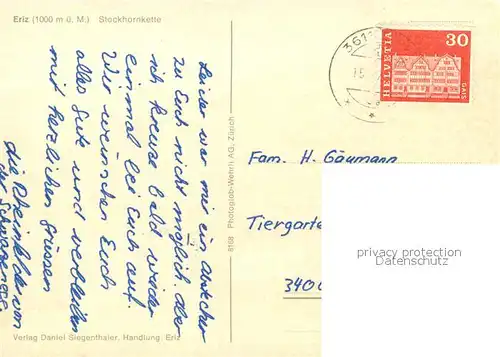 Eriz (1000 m ü. M.) Stockhornkette
Leider war mir ein Abstecher
zu Euch nicht möglich. der
ich kreuze bald wieder
einmal bei Euch auf.
Wir wünschen Euch
alles Gute und verbleiben
mit herzlichen Grüssen
die
der
Verlag Daniel Siegenthaler, Handlung, Eriz
8168 Photoglob-Wehrli AG, Zürich
361
15.
HELVETIA
30
GAIS
Fam. H. Gäumann
Tiergarte
3400
privacy protection
watermark